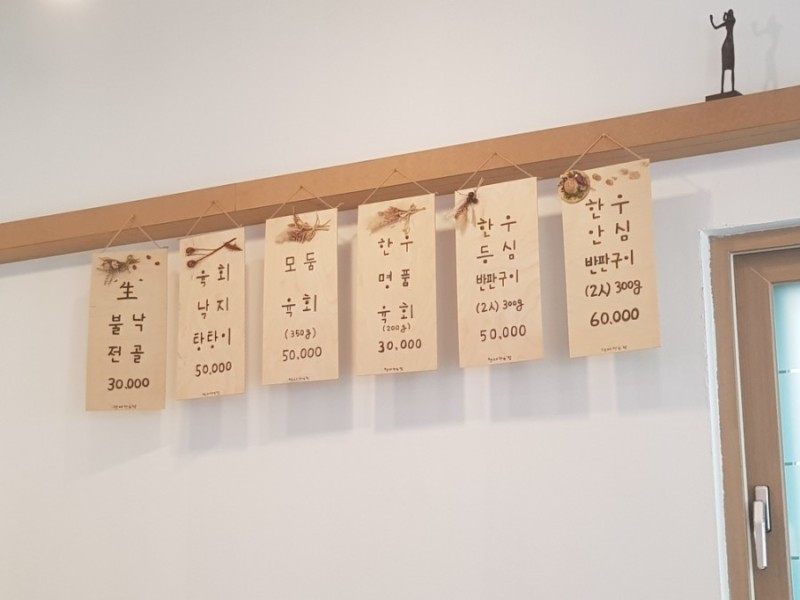 生
불낙
전골
30.000
육회
낙지
탕탕이
50,000
모둠
육회
(350g)
50.000
한우
명품
육회
(200g)
30.000
한우
등심
반판구이
(2人) 300g
50.000
한우
안심
반판구이
(2人) 300g
60.000